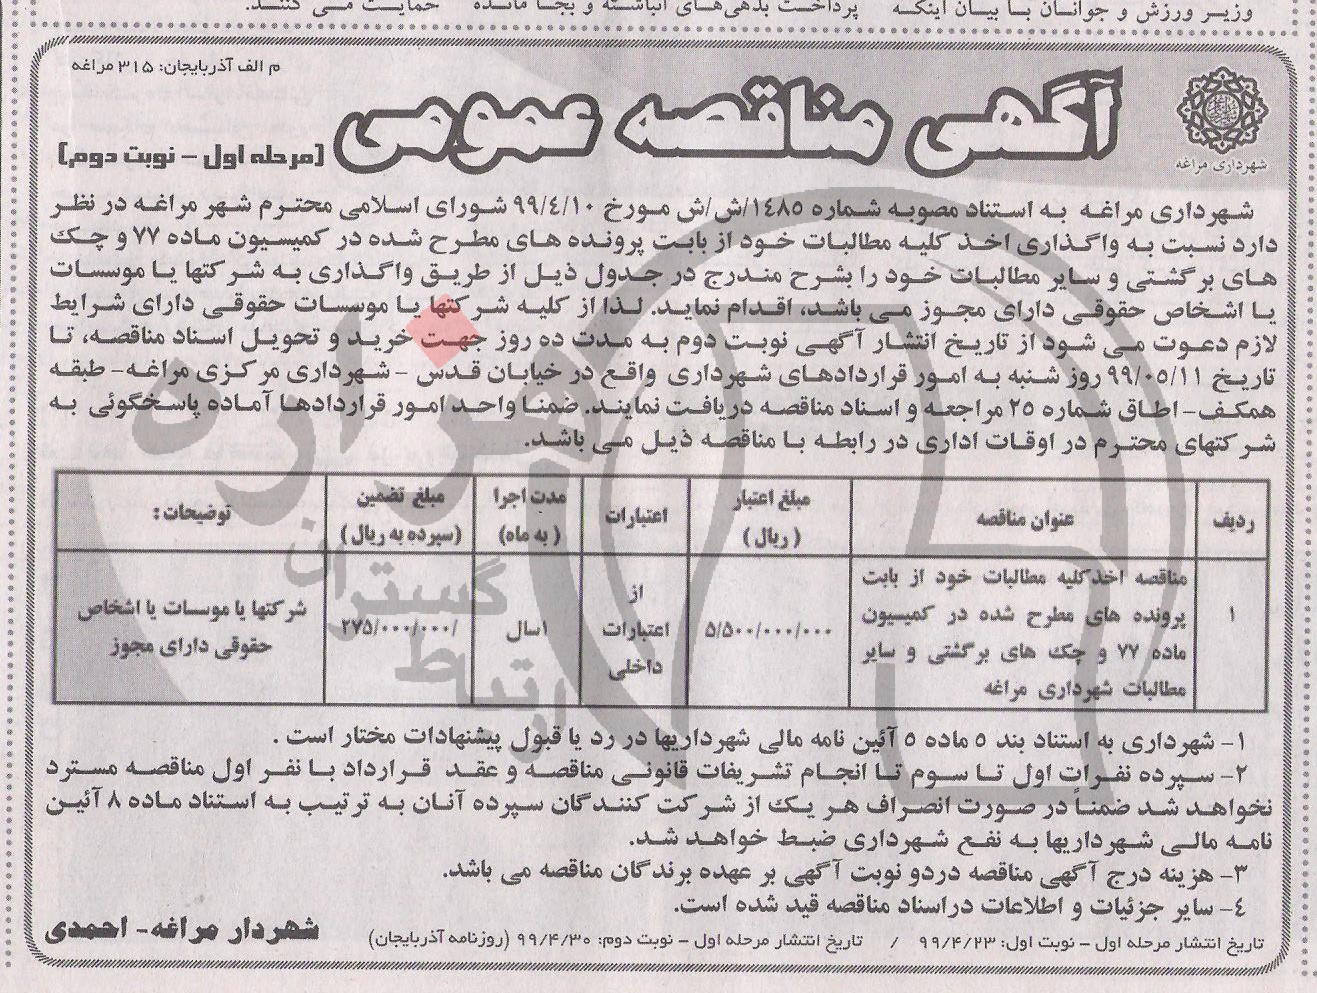 وزیر ورزش و جوانان با بیان اینکه پرداخت بدهی‌های انباشته و بجا مانده حمایت می کنند.
م الف آذربایجان: ۳۱۵ مراغه
آگهی مناقصه عمومی
(مرحله اول - نوبت دوم)
شهرداری مراغه
شهرداری مراغه به استناد مصوبه شماره ۱۴۸۵/ش/ش مورخ ۹۹/۴/۱۰ شورای اسلامی محترم شهر مراغه در نظر
دارد نسبت به واگذاری اخذ کلیه مطالبات خود از بابت پرونده های مطرح شده در کمیسیون ماده ۷۷ و چک
های برگشتی و سایر مطالبات خود را بشرح مندرج در جدول ذیل از طریق واگذاری به شرکتها یا موسسات
یا اشخاص حقوقی دارای مجوز می باشد، اقدام نماید. لذا از کلیه شرکتها یا موسسات حقوقی دارای شرایط
لازم دعوت می شود از تاریخ انتشار آگهی نوبت دوم به مدت ده روز جهت خرید و تحویل اسناد مناقصه، تا
تاریخ ۹۹/۰۵/۱۱ روز شنبه به امور قراردادهای شهرداری واقع در خیابان قدس - شهرداری مرکزی مراغه- طبقه
همکف- اطاق شماره ۲۵ مراجعه و اسناد مناقصه دریافت نمایند. ضمنا واحد امور قراردادها آماده پاسخگوئی به
شرکتهای محترم در اوقات اداری در رابطه با مناقصه ذیل می باشد.
ردیف عنوان مناقصه مبلغ اعتبار (ریال) اعتبارات مدت اجرا (به ماه) مبلغ تضمین (سپرده به ریال) توضیحات:
۱ مناقصه اخذ کلیه مطالبات خود از بابت
پرونده های مطرح شده در کمیسیون
ماده ۷۷ و چک های برگشتی و سایر
مطالبات شهرداری مراغه
۵/۵۰۰/۰۰۰/۰۰۰
از
اعتبارات
داخلی
۱سال
۲۷۵/۰۰۰/۰۰۰/
شرکتها یا موسسات یا اشخاص
حقوقی دارای مجوز
۱- شهرداری به استناد بند ۵ ماده ۵ آئین نامه مالی شهرداریها در رد یا قبول پیشنهادات مختار است .
۲- سپرده نفرات اول تا سوم تا انجام تشریفات قانونی مناقصه و عقد قرارداد با نفر اول مناقصه مسترد
نخواهد شد ضمناً در صورت انصراف هر یک از شرکت کنندگان سپرده آنان به ترتیب به استناد ماده ۸ آئین
نامه مالی شهرداریها به نفع شهرداری ضبط خواهد شد.
۳- هزینه درج آگهی مناقصه دردو نوبت آگهی بر عهده برندگان مناقصه می باشد.
۴- سایر جزئیات و اطلاعات دراسناد مناقصه قید شده است.
تاریخ انتشار مرحله اول - نوبت اول: ۹۹/۴/۲۳ / تاریخ انتشار مرحله اول - نوبت دوم: ۹۹/۴/۳۰ (روزنامه آذربایجان)
شهردار مراغه- احمدی
هزاره
گستران
ارتباط